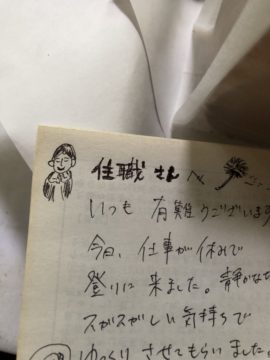 住職さんへ
いつも 有難うございます
今日、仕事が休みで
登りに 来ました。静かな
スガスガしい 気持ちで
ゆっくり させてもらいました